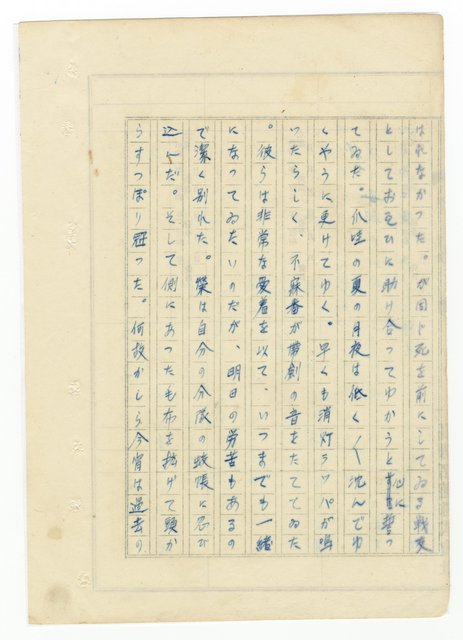 はれなかつた。が同じ死を前にしてゐる戦友
としてお互ひに助け合つてゆかうと心に誓つ
てゐた。爪哇の夏の月夜は低く〱沈んでゆ
くやうに更けてゆく。早くも消灯ラッパが鳴
つたらしく、不寝番が帯剣の音をたててゐた
。彼らは非常な愛着を以て、いつまでも一緒
になつてゐたいのだが、明日の労苦もあるの
で潔く別れた。榮は自分の分隊の蚊帳に忍び
込んだ。そして側にあつた毛布を拡げて頭か
らすつぽり冠つた。何故かしら今宵は過去の